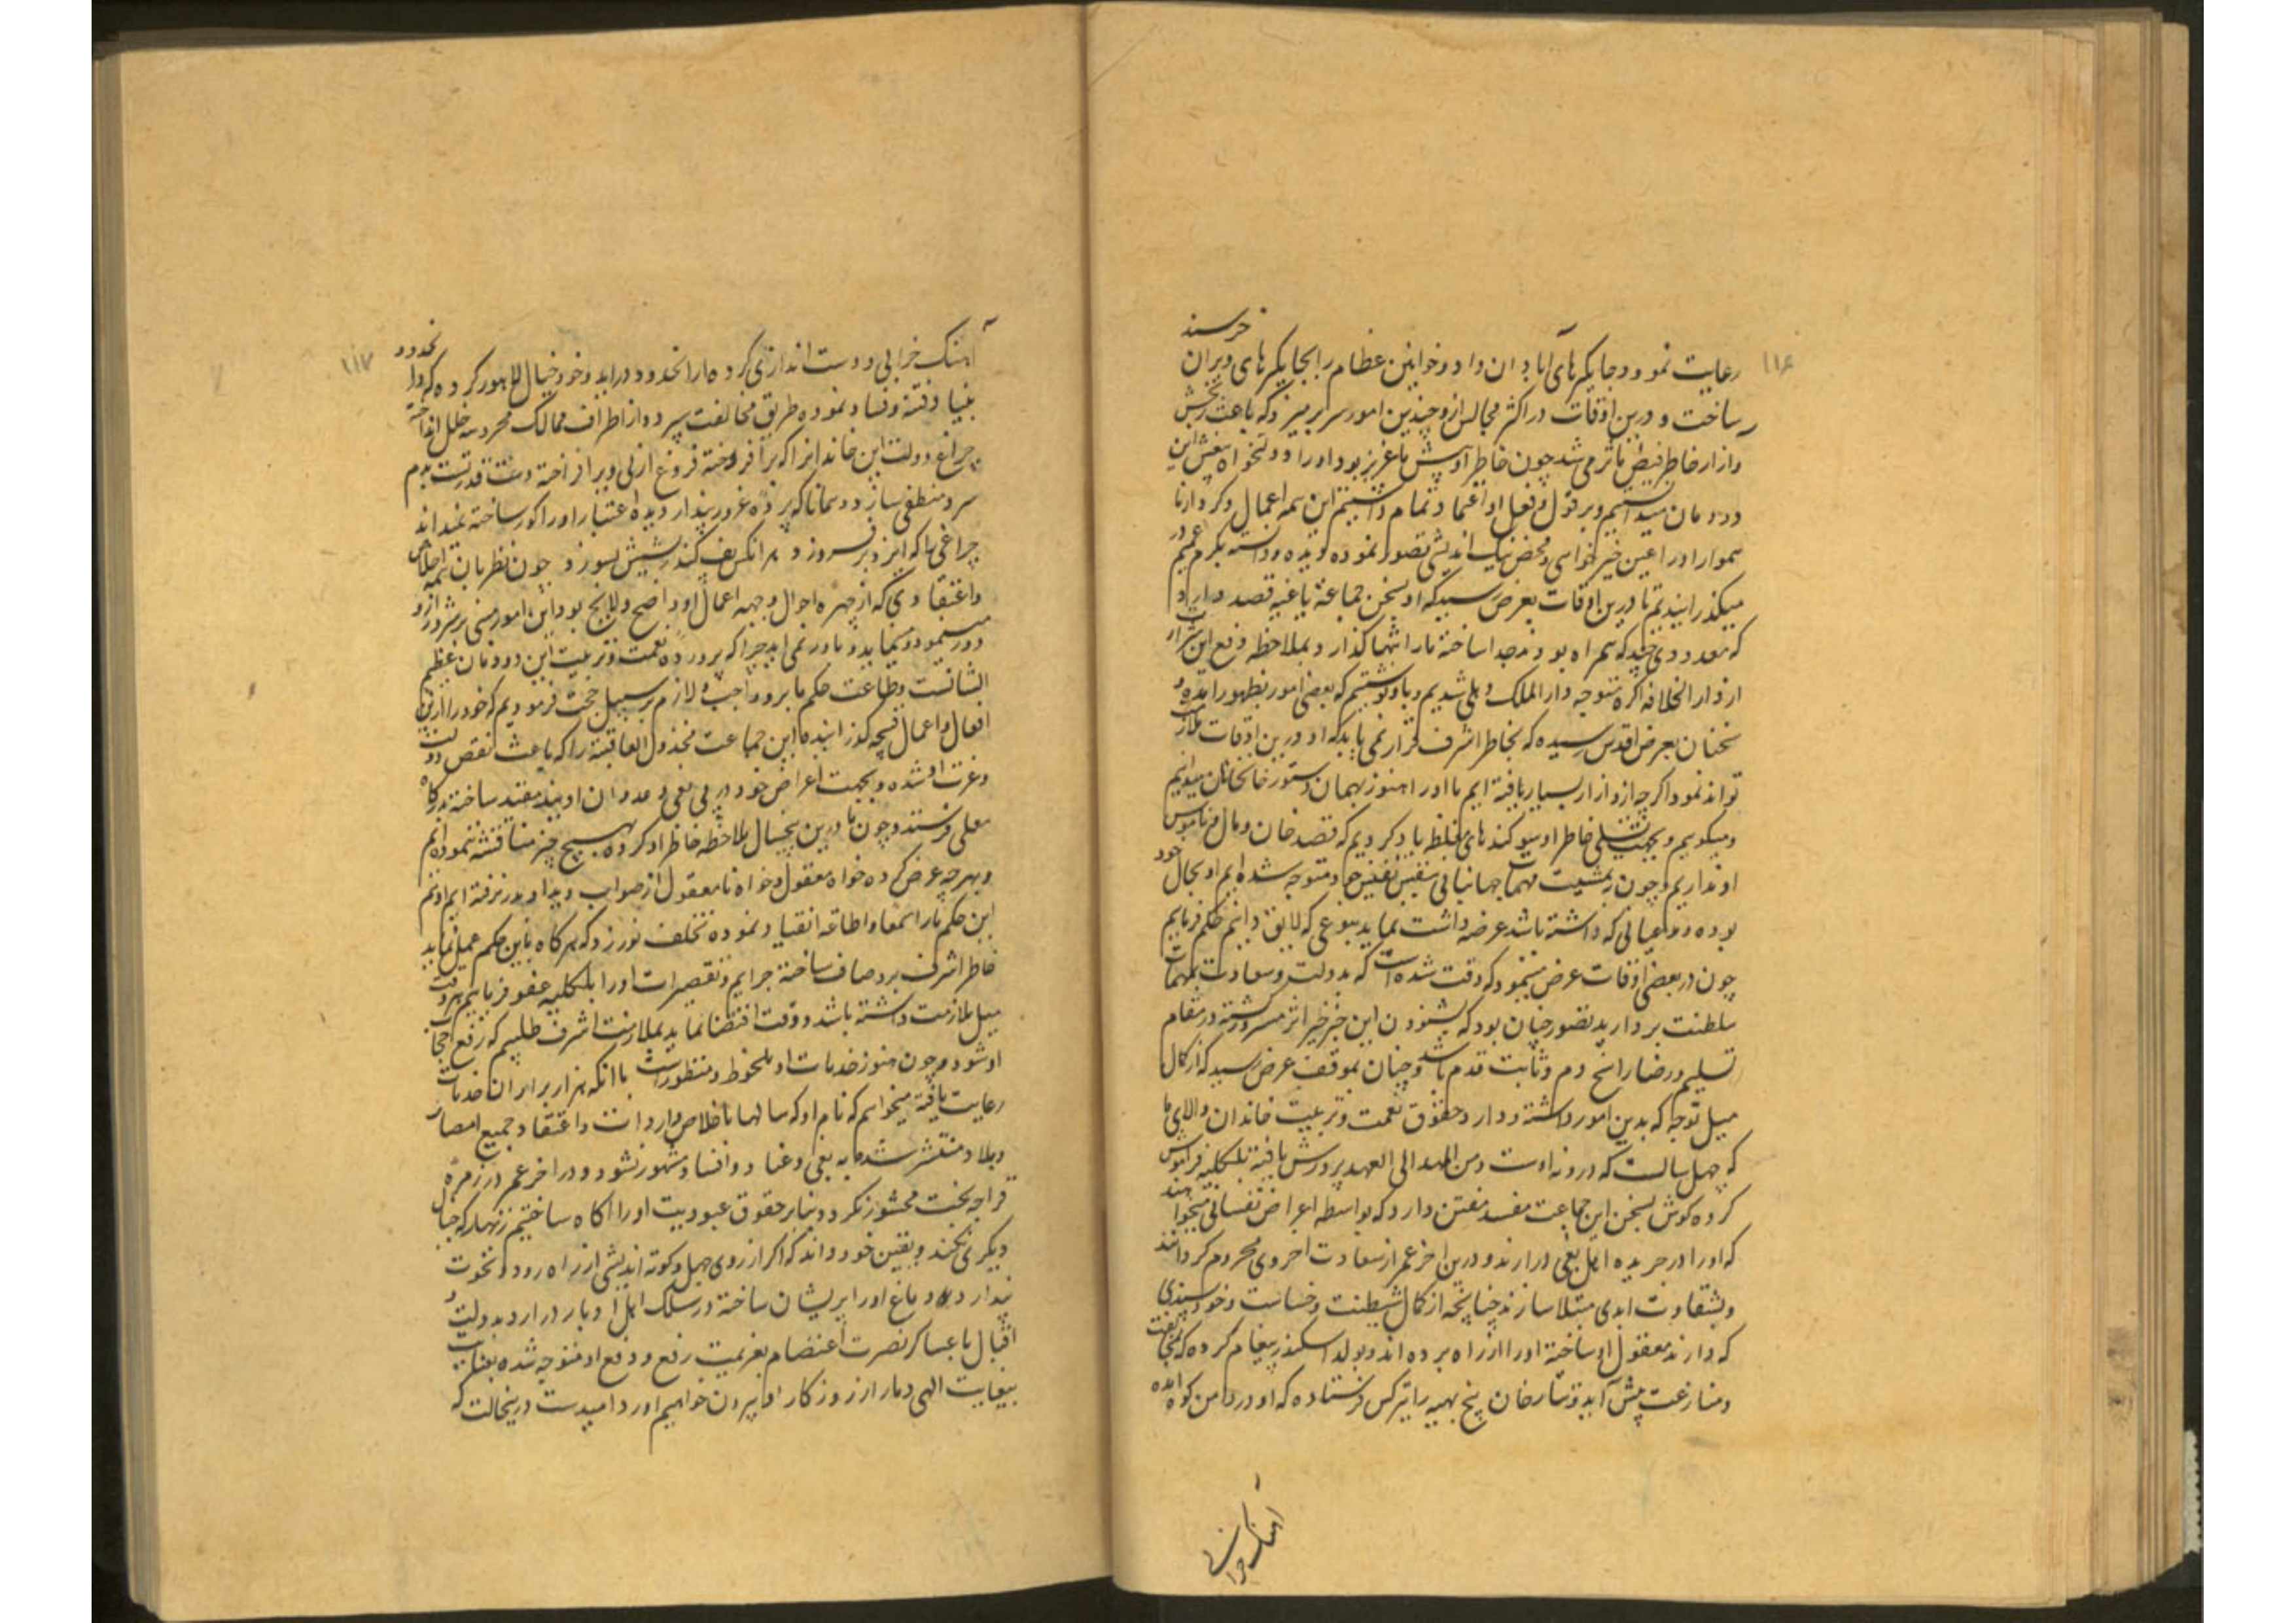 ۱۱۶
رعایت نمود و جایگیرهای آبادان داد و خوانین عظام را بجایگیرهای ویران خرسند
ساخت و درین اوقات در اکثر مجالس ازو چندین امور سر بر میزد که باعث رنجش
و ازار خاطر فیض ما می شد چون خاطر او پیش ما عزیز بود و او را دولتخواه این
دودمان میدانستیم و بر قول و فعل او اعتماد تمام داشتیم این همه اعمال و کردار نا
هموار او را عین خیر خواهی و محض نیک اندیشی تصور نموده دیده و دانسته بکرم عمیم در
میگذرانیدیم تا درین اوقات بعرض رسید که او بسخن جماعة باغیه قصد دارد
که معدودی چند که همراه بودند جدا ساخته ما را تنها گذارد و بملاحظه دفع این
از دار الخلافه اگره متوجه دار الملک دهلی شدیم و باو نوشتیم که بعضی امور بظهور آمده و
سخنان بعرض اقدس رسیده که بخاطر اشرف قرار نمی یابد که او درین اوقات ملازمت
تواند نمود اگرچه ازو ازار بسیار یافته ایم ما او را هنوز بهمان دستور خانخانان میدانیم
و میگوییم و بجهت تسلی خاطر او سوگندهای غلیظ یاد کردیم که قصد خان و مال و ناموس
او نداریم و چون به مشیت مهمات جهانبانی بنفس نفیس خود متوجه شده ایم او بحال خود
بوده مدعیاتی که داشته باشد عرضه داشت نماید بنوعی که لایق دانیم حکم فرماییم
چون در بعضی اوقات عرض مینمود که وقت شده است که بدولت و سعادت بمهمات
سلطنت بردارید تصور چنان بود که بشنودن این خبر خیر اثر مسرور گشته در مقام
تسلیم و رضا راسخ دم و ثابت قدم باشد و چنان بموقف عرض رسید که از کمال
میل توجه که بدین امور داشته و دارد حقوق نعمت و تربیت خاندان والای ما
که چهل سالست که درونه اوست و من المهد الی العهد پرورش یافته بالکلیه فراموش
کرده گوش بسخن این جماعت مفسد مفتن دارد که بواسطه اغراض نفسانی میخواهند
که او را در جریده اهل بغی درارند و درین اخر عمر از سعادت اخروی محروم گردانند
و بشقاوت ابدی مبتلا سازند چنانچه از کمال شیطنت و خساست و خود پسندی
که دارند معقول او ساخته او را از راه برده اند و بولد اسکندر پیغام کرده که بمخالفت
و منازعت پیش آید و تتارخان پنج بهیه را بترکس فرستاده که او در دامن کوه آمده
اهنک خرابی
۱۱۷
آهنک خرابی و دست اندازی کرده مارا بخدود دراید و خود خیال لاهور کرده که دران حدود
بنیاد فتنه و فساد نموده طریق مخالفت سپرد و از اطراف ممالک محروسه خلل انداخته
چراغ دولت این خاندانرا که برافروخته فروغ ازلی و برافراخته دست قدرتست بدم
سرد منطفی سازد و همانا که پرده غرور پندار دیده اعتبار او را کور ساخته نمیداند
چراغی را که ایزد بر فروزد هر انکس پف کند ریشش بسوزد چون نظر بان همه اخلاص
و اعتقادی که از چهره احوال و جبهه اعمال او واضح و لایح بود این امور مبنی بر شر ازو
دور مینمود و مینماید و باور نمی اید چرا که پرورده نعمت و تربیت این دودمان عظیم
الشانست و طاعت حکم ما برو واجب و لازم بر سبیل حجت فرمودیم که خود را ازین
افعال و اعمال قبیحه گذرانیده این جماعت مخذول العاقبة را که باعث نقص دولت
و عزت او شده و بجهت اغراض خود در پی بغی و عدوان اویند مقید ساخته بدرگاه
معلی فرستد و چون ما درین پنجسال ملاحظه خاطر او کرده بهیچ چیز مناقشه ننموده ایم
و بهرچه عرض کرده خواه معقول و خواه نامعقول از صواب دید او بدر نرفته ایم او نیز
این حکم ما را سمعا و اطاعه انقیاد نموده تخلف نورزد که هرگاه باین حکم عمل نماید
خاطر اشرف برو صاف ساخته جرایم و تقصیرات او را بالکلیه عفو فرماییم هر وقت
میل ملازمت داشته باشد و وقت اقتضا نماید بملازمت اشرف طلبیم که رفع حجاب
او شود و چون هنوز خدمات او ملحوظ و منظور است با آنکه هزار برابر ان خدمات
رعایت یافته میخواهیم که نام او که سالها باخلاص و ارادت و اعتقاد جمیع امصار
و بلاد منتشر شده به بغی و عناد و افساد مشهور نشود و در اخر عمر در زمره
قراجه بخت محشور نکردد بنابر حقوق عبودیت او را اگاه ساختیم زنهار که خیال
دیگری نکند و بیقین خود داند که اگر از روی جهل و کوته اندیشی از راه رود و نخوت
پندار در دماغ او را پریشان ساخته در سلک اهل ادبار درارد بدولت و
اقبال با عساکر نصرت اعتصام بعزیمت رفع و دفع او متوجه شده بعنایت
بیغایت الهی دمار از روزگار او بیرون خواهیم اورد امیدست درینحالت که